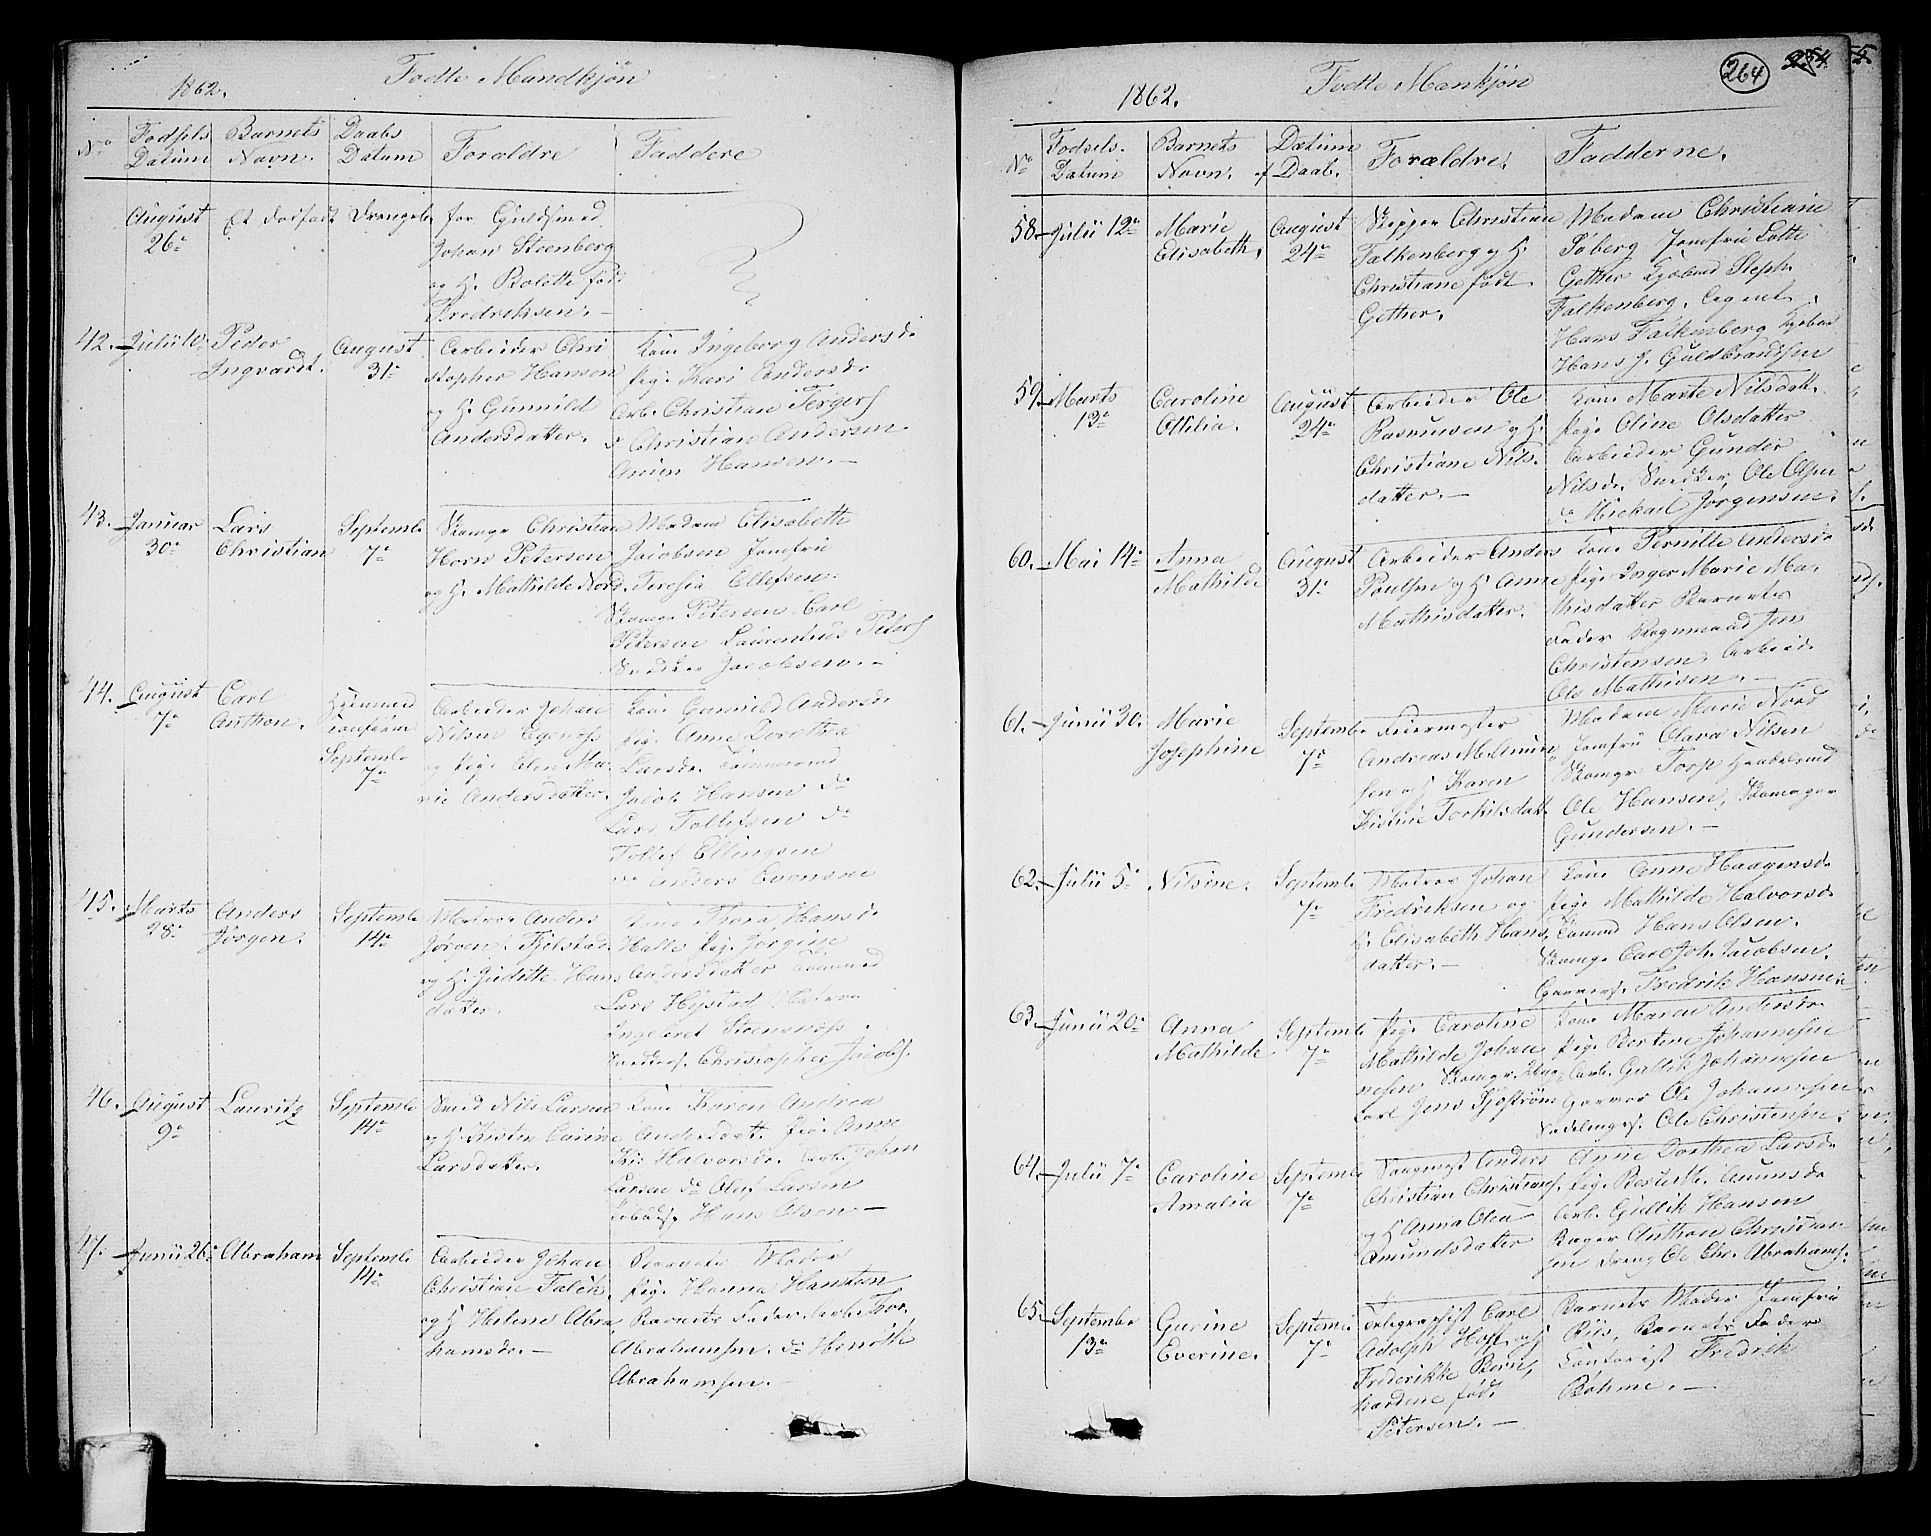 1862.
Fødte Mandkjøn
No
Fødsels Datum
Barnets Navn.
Daabs Datum
Foraldre
Faddere
August 26de
Et dødfødt Drengeb.
for Guldsmed
Johan Steenberg
og H. Bolette født
Fredriksen. —
42.
Julii 10
Peder
Ingvardt.
August
31te
Arbeider Chri
stopher Hansen
og H. Gunnild
Andersdatter.
Kone Ingeborg Andersd.
Pige Kari Andersd.
Arb. Christian Jørgers
do Christian Andersen
Hansen. —
43.
Januar
30te
Lars
Christian
Septembr
7de
Skomgr Christian
Horn Petersen
og H. Mathilde Nord.
Madam Elisabeth
Jacobsen Jomfru
Teresia Ellefsen.
Skomgr Petersen Carl
Petersen Laurentius Peters
Snedker Jacobsen. —
44.
August
7de
Carl
Anthon.
Septembr
7de
Arbeider Johan
Nilsen Egenæss
og Pige Olen Ma
rie Andersdatter.
Kone Gunnild Andersd.
Pige Anne Dorothea
Larsdr. Tømmermd
Jacob Hansen do
Lars Tollefsen do
Tollef Ellingsen
do Anders Evensen
45.
Marts
28de
Anders
Jørgen.
Septembr
14de
Matros Anders
Jørgen Fjelstad
og H. Juditte Hans
datter.
Kone Thora Hansd.
Halle Pige Jørgine
Andersdatter Tømmd
Lars Hystad Matros
Ingebret Steensnæss.
Snedkers. Christopher Jacobs.
46.
August
9de
Lauritz
Septembr
14de
Smed Nils Larsen
og H. Kirsten Carine
Larsdatter.
Kone Karen Andrea
Andersdatt. Pige Anne
Kir. Halvorsdr. Arb. Johan
Larsen do Oluf Larsen
Hans Olsen —
47.
Junii 26de
Abraham
Septembr
14de
Arbeider Johan
Christian Falch
og H. Helene Abra
hamsdr. —
Barnets Moder
Pige Hanna Hansten
Barnets Fader. Arb. Thor.
Abrahamsen. do Henrik
Abrahamsen. —
264
254
1862.
Fødte Mankjøn
No
Fødsels. Datum
Barnets Navn.
Datum f Daab.
Forældre.
Fadderne.
58.
Julii 12te
Marie
Elisabeth.
August
24de
Skipper Christian
Falkenberg og H.
Christiane født
Gether.
Madam Christiane
Søberg Jomfru Lotte
Gether Kjøbmd Steph.
Falkenberg.
Hans Falkenberg Kjøbm
Hans J. Guldbrandsen
59.
Marts
13de
Caroline
Ottilia.
August
24de
Arbeider Ole
Rasmusen og H.
Christiane Nils.
datter. —
Kone Marte Nilsdatt.
Pige Oline Olsdatter
Arbeider Gunder
Nilsen. Snedker Ole Olsen
do Mickael Jørgensen.
60.
Mai 14de
Anna
Mathilde
August
31te
Arbeider Anders
Poulsen og H. Anne
Mathisdatter.
Kone Pernille Andersd
Pige Inger Marie Ma
thisdatter Barnets
Fader Bøgnmand Jens
Christensen. Arbeid.
Ole Mathisen. —
61.
Junii 30.
Marie
Josephine
Septembr
7de
Feiermester
Andreas M.
sen og H. Karen
Kistine Torkilsdatt.
Madam Marie Nord
Jomfru Clara Nilsen
Skomgr Torp
Ole Hansen, Skomager
Gundersen. —
62.
Julii 5te
Nilsine.
Septembr
7de
Matros Johan
Fredriksen og
H. Elisabeth Hans
datter. —
Kone Anne Haagensd.
Pige Mathilde Halvorsd.
Tømmd Hans Olsen.
Skomgr Carl Joh. Jacobsen.
Garvers. Fredrik Hansen
63.
Junii 20de
Anna
Mathilde
Septembr
7de
Pige Caroline
Mathilde Johan
nesen Skomgr.
Carl Jens Sjøstrøm
Kone Maren Andersd.
Pige Bertine Johannesen
Arb. Gullik Johannesen
Garver Ole Johannesen
Sadelmgs. Ole Christensen.
64.
Julii 7de
Caroline
Amalia
Septembr
7de
Anders
Christian Christians.
og H. Anna Olea
Amundsdatter
Anne Dorthea Larsd.
Pige Amunsdr
Arb. Gullik Hansen
Bager Anthon Christian
sen Dreng Ole Chr. Abrahams.
65.
Septembr
13de
Gurine
Everine.
Septembr
7de
Telegraphist Carl
Adolph Hoff og H
Frederikke Bern
hardine født
Petersen. —
Barnets Moder Jomfru
Riis, Barnets Fader
Contorist Fredrik
Bøhme. —